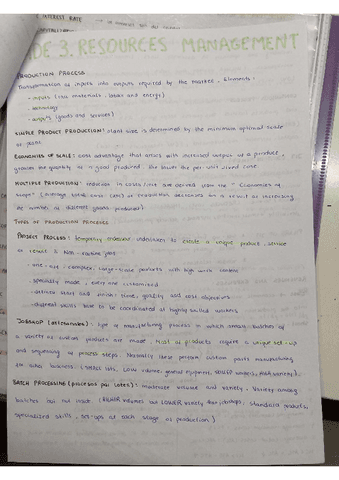 INTEREST RATE
DE 3. RESOURCES MANAGEMENT
PRODUCTION PROCESS:
Transformation of inputs into outputs required by the market. Elements:
- inputs (raw materials, labor and energy)
- technology
- outputs (goods and services)
SIMPLE PRODUCT PRODUCTION: plant size is determined by the minimum optimal scale
of plant
ECONOMIES OF SCALE: cost advantage that arises with increased output of a product.
greater the quantity of a good produced, the lower the per-unit fixed cost.
MULTIPLE PRODUCTION: reductions in costs/unit are derived from the "Economies of
scope" (average total cost (ATC) of production decreases as a result of increasing
the number of different goods produced)
TYPES OF PRODUCTION PROCESSES
PROJECT PROCESS: temporary endeavor undertaken to create a unique product, service
or result & Non-routine job
- one-off - complex, large-scale products with high work content
- specially made, every one customized
- defined start and finish: time, quality and cost objectives
- different skills have to be coordinated
JOBSHOP: type of manufacturing process in which small batches of
a variety of custom products are made. Most of products require a unique set-up
and sequencing of process steps. Normally these perform custom parts manufacturing
for other business (SMALL lots, low volume, general equipment, skilled workers, HIGH VARIETY).
BATCH PROCESSING (procesos por lotes): moderate volume and variety. Variety among
batches but not inside. (HIGHER volumes but LOWER variety than jobshops, standard products,
specialized skills, set-ups at each stage of production)